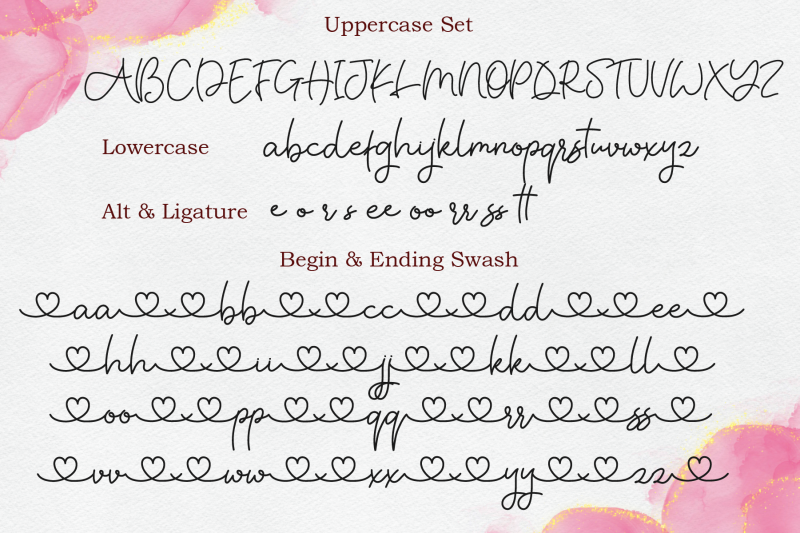 Uppercase Set
ABCDEFGHIJKLMNOPQRSTUVWXYZ
Lowercase
abcdefghijklmnopqrstuvwxyz
Alt & Ligature e o r s ee oo rr ss tt
Begin & Ending Swash
aa bb cc dd ee
hh ii jj kk ll
oo pp qq rr ss
vv ww xx yy zz